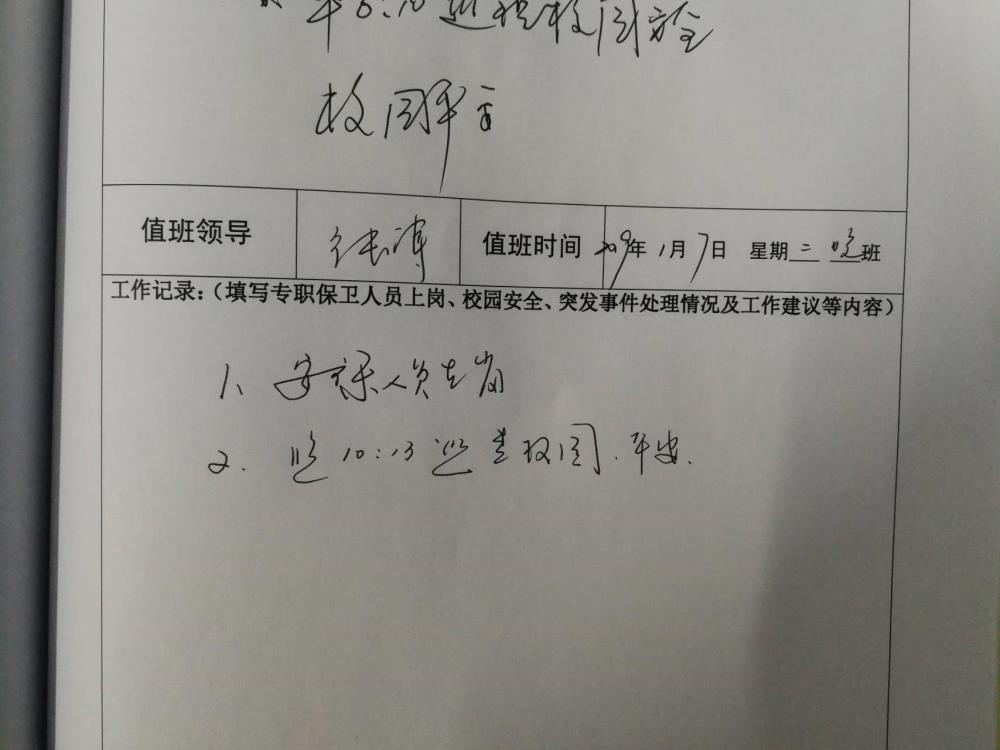 校园平安
值班领导 值班时间 2019年1月7日 星期二 晚班
工作记录:(填写专职保卫人员上岗、校园安全、突发事件处理情况及工作建议等内容)
1、安保人员在岗
2. 晚10:13巡查校园.平安.